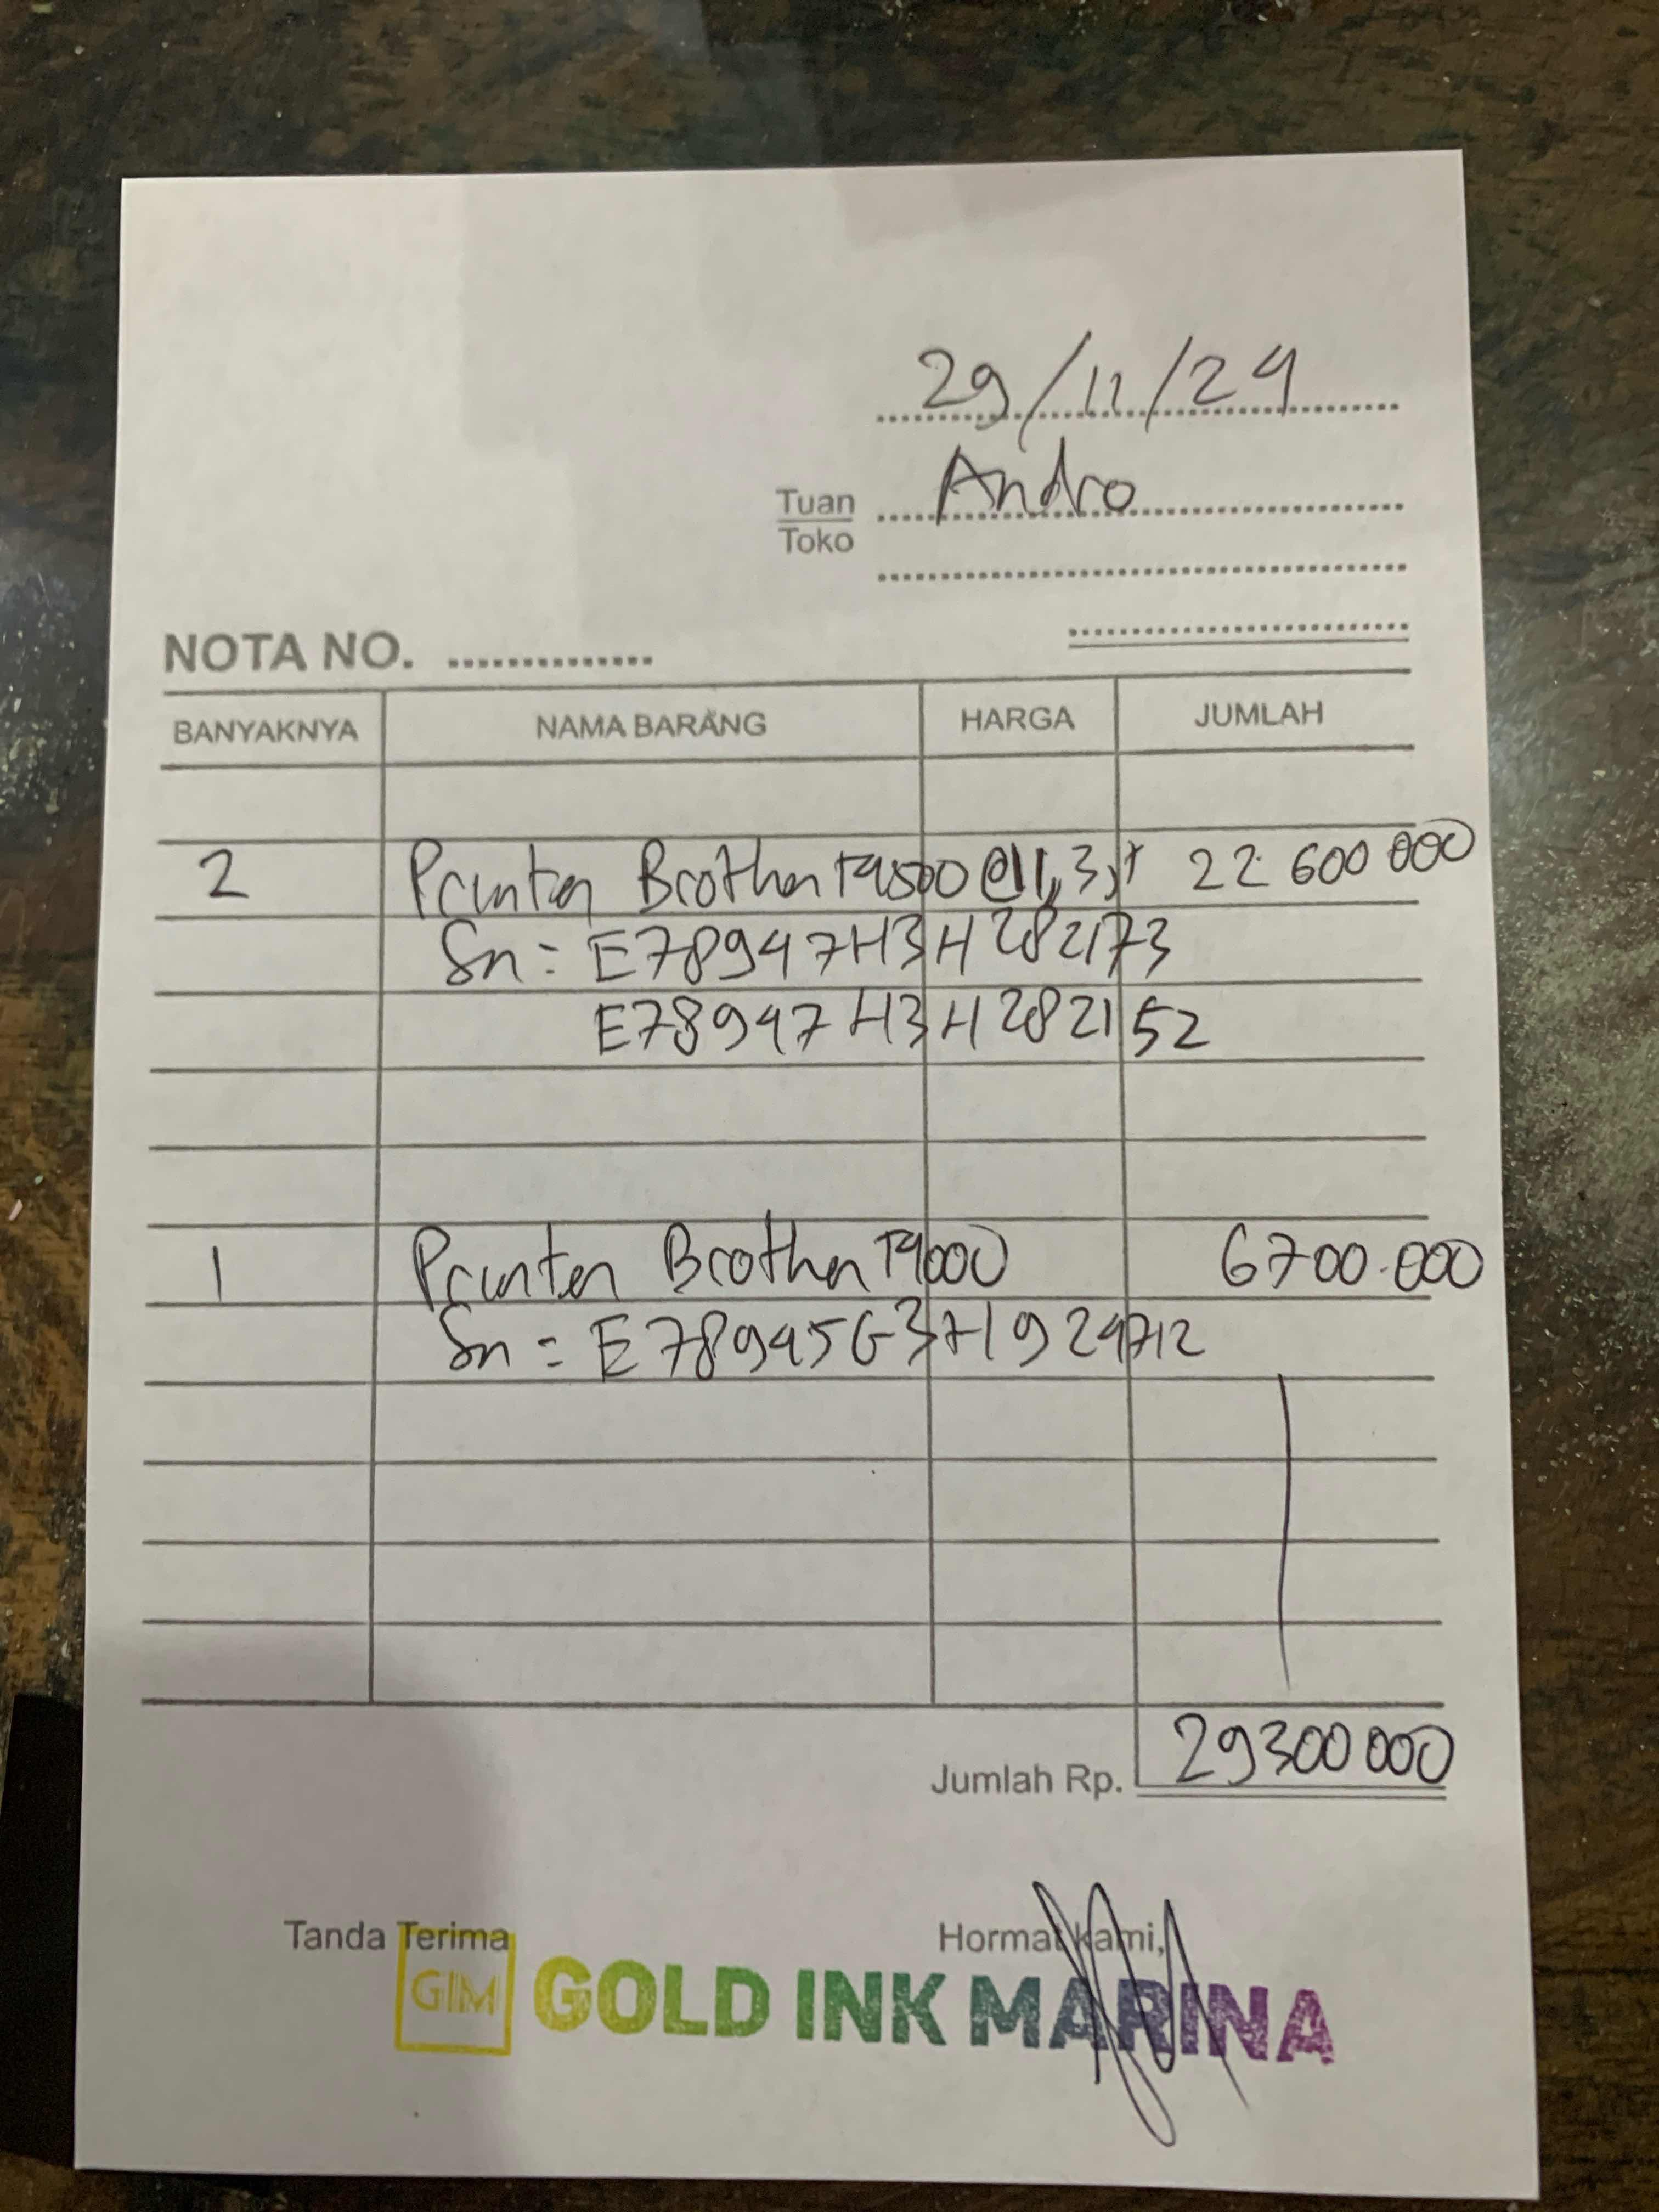 29/11/24
Tuan Andro
Toko
NOTA NO.
BANYAKNYA NAMA BARANG HARGA JUMLAH
2 Printer Brother T4500 @11,3jt 22.600 000
Sn = E78947H3H282173
E78947H3H282152
1 Printer Brother T4000 6700.000
Sn = E78945G3H924712
Jumlah Rp. 29300 000
Tanda Terima Hormat kami,
GIM GOLD INK MARINA